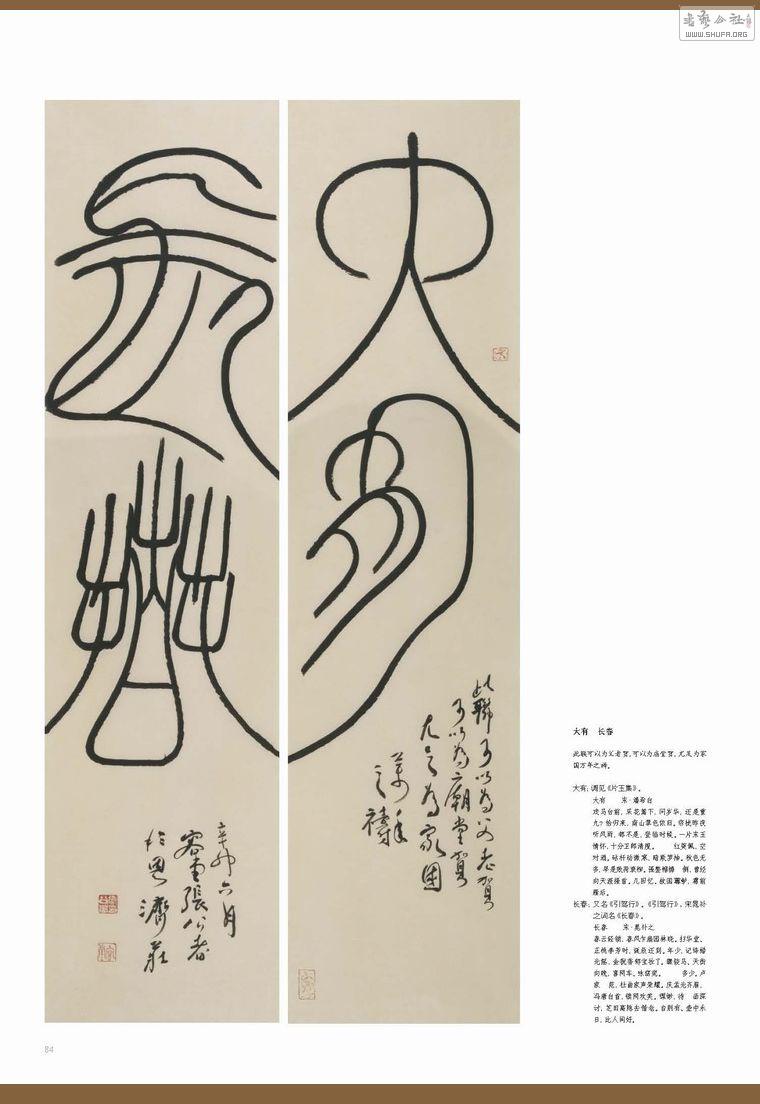 书艺公社
WWW.SHUFA.ORG
大有
长春
此联可以为父老贺
可以为庙堂贺
尤足为家国
万年
之祷
辛卯六月
容堂張公者
於恩濟莊
大有 长春
此联可以为父老贺,可以为庙堂贺,尤足为家
国万年之祷。
大有:调见《片玉集》。
大有 宋·潘希白
戏马台前,采花篱下,问岁华、还是重
九?恰归来、南山翠色依旧。帘栊昨夜
听风雨,都不是、登临时候。一片宋玉
情怀,十分卫郎清瘦。 红萸佩,空
对酒。砧杵动微寒,暗欺罗袖。秋色无
多,早是败荷衰柳。强整帽檐 侧,曾经
向天涯搔首。几回忆、故国莼鲈,霜前
雁后。
长春:又名《引驾行》。《引驾行》,宋晁补
之词名《长春》。
长春 宋·晁补之
春云轻锁,春风乍扇园林晓。扫华堂、
正桃李芳时,诞辰还到。年少。记绛蜡
光摇,金猊香郁宝妆了。骤骏马、天街
向晚,喜同车、咏窈窕。 多少。卢
家 苑,杜曲家声荣耀。庆孟光齐眉,
冯唐白首,镇同欢笑。缥缈。待 函深
讨,芝田高隐去偕老。自别有、壶中永
日,比人间好。
84